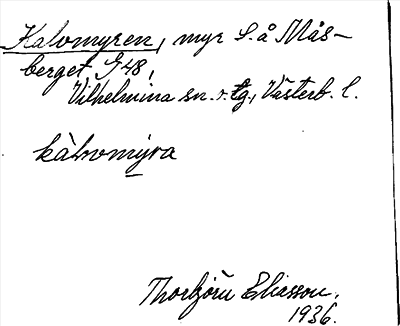 Kalvmyren, myr S. å Mås-
berget, G48,
Vilhelmina sn. o. tg., Västerb. l.
kàlvmỳra
Thorbjörn Eliasson.
1936.